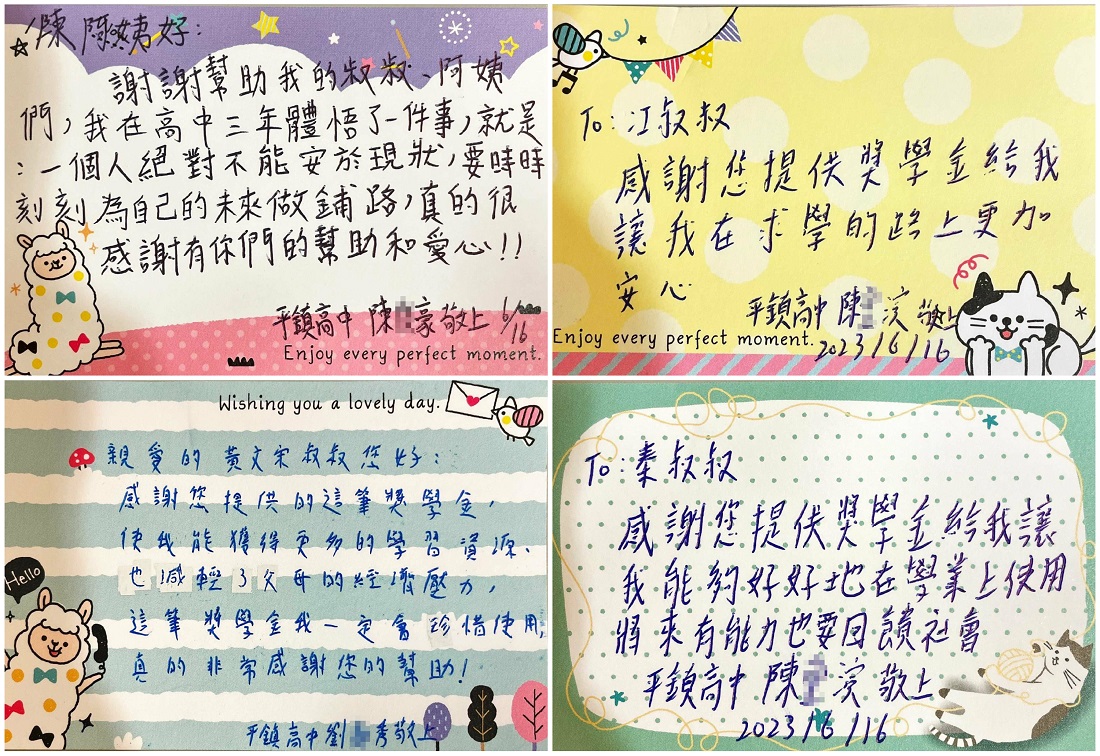 陳阿姨好：
謝謝幫助我的叔叔、阿姨
們，我在高中三年體悟了一件事，就是
：一個人絕對不能安於現狀，要時時
刻刻為自己的未來做鋪路，真的很
感謝有你們的幫助和愛心!!
平鎮高中 陳豪敬上 6/16
Enjoy every perfect moment.
To：江叔叔
感謝您提供獎學金給我
讓我在求學的路上更加
安心
平鎮高中 陳 敬上
Enjoy every perfect moment.
2023/6/16
Wishing you a lovely day.
親愛的 黃文宗叔叔您好：
感謝您提供的這筆獎學金，
使我能獲得更多的學習資源、
也減輕了父母的經濟壓力，
這筆獎學金我一定會珍惜使用，
真的非常感謝您的幫助！
Hello
平鎮高中劉秀敬上
To：秦叔叔
感謝您提供獎學金給我讓
我能夠好好地在學業上使用
將來有能力也要回饋社會
平鎮高中 陳 敬上
2023/6/16